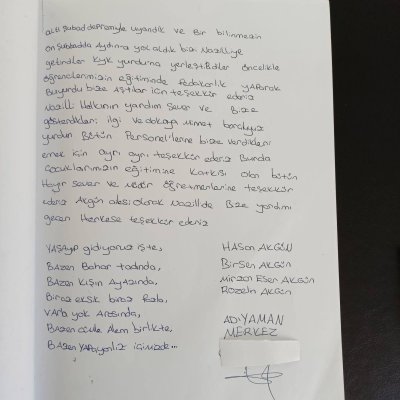 Şubat depremiyle uyandık ve Bir bilinmezin
on şubatda Aydın-a yol aldık bizi Nazilliye
getirdiler kyk yurduna yerleştirdiler öncelikle
öğrencilerimizin eğitiminde fedakarlık yaparak
Buyurdu bize Açtılar için teşekkür ederiz
Nazilli Halkının yardım sever ve Bize
gösterdikleri ilgi ve alakaya minnet borçluyuz
yurdun Bütün Personel'lerine bize verdikleri
emek için ayrı ayrı teşekkür ederiz Burda
çocuklarımızın eğitimine katkısı olan bütün
Hayır sever ve müdür öğretmenlerine teşekkür
ederiz Akgün ailesi olarak Nazillde Bize yardımı
geçen Herkese teşekkür ederiz
YAŞAyıp gidiyoruz işte,
BAzen Bahar tadında,
BAzen Kışın Ayazında,
Biraz eksik biraz fazla,
VARla yok Arasında,
BAzen cümle Alem birlikte,
BAzen YApayalnız içimizde...
HAsan AKGÜN
Birsen AKGÜN
Mirzan Eser AKGÜN
Rozelin AKGÜN
ADIYAMAN
MERKEZ